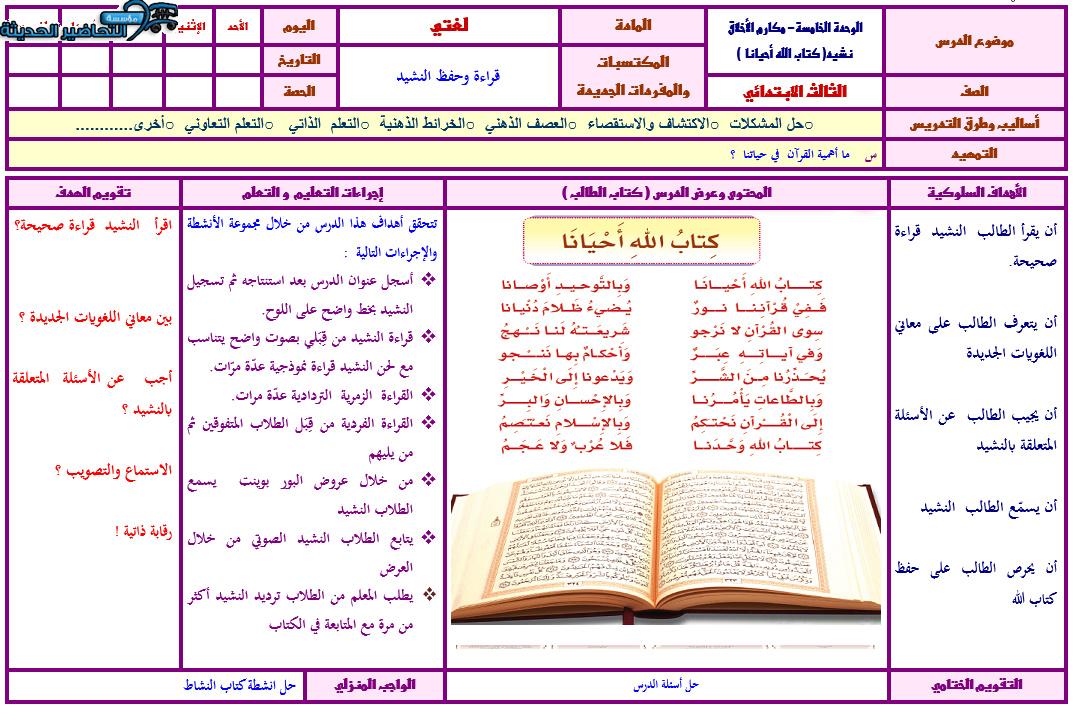 مؤسسة
التحاضير الحديثة
موضوع الدرس
الوحدة الخامسة - مكارم الأخلاق
نشيد( كتاب الله أحيانا )
المادة
لغتي
اليوم
الأحد
الصف
الثالث الابتدائي
المكتسبات
والمفردات الجديدة
قراءة وحفظ النشيد
التاريخ
الحصة
أساليب وطرق التدريس
○حل المشكلات ○الاكتشاف والاستقصاء ○العصف الذهني ○الخرائط الذهنية ○التعلم الذاتي ○التعلم التعاوني ○أخرى............
التمهيد
س ما أهمية القرآن في حياتنا ؟
الأهداف السلوكية
المحتوى وعرض الدرس ( كتاب الطالب )
إجراءات التعليم و التعلم
تقويم الهدف
أن يقرأ الطالب النشيد قراءة
صحيحة.
أن يتعرف الطالب على معاني
اللغويات الجديدة
أن يجيب الطالب عن الأسئلة
المتعلقة بالنشيد
أن يسمّع الطالب النشيد
أن يحرص الطالب على حفظ
كتاب الله
كِتَابُ اللهِ أَحْيَانَا
كِتَـــابُ اللهِ أَحْيَـــانَا وَبِالتَّوحِيـدِ أَوْصَانا
فَـفِيْ قُـرْآنِنَـا نـورٌ يُـضيءُ ظَـلامَ دُنْيانا
سِوى القُرْآنِ لا نَرْجو شَريعَـتُهُ لَنـا نَـهْجُ
وَفي آيـاتـهِ عِبَـرٌ وَأَحْكامٌ بِها نَنْـجو
يُحَـذِّرُنا مِنَ الشَّــرِّ وَيَدْعونا إِلَى الْخَيْـرِ
وَبِالطَّاعاتِ يَأْمُـرُنـا وَبِالإِحْسانِ وَالبِـرِّ
إِلَى الْقُـرْآنِ نَحْتكِمُ وَبِالإِسْـلامِ نَعـتصِمُ
كِتَـــابُ اللهِ وَحَّدَنـا فَلا عُرْبٌ وَلا عَجَـمُ
تتحقق أهداف هذا الدرس من خلال مجموعة الأنشطة
والإجراءات التالية :
❖ أسجل عنوان الدرس بعد استنتاجه ثم تسجيل
النشيد بخط واضح على اللوح.
❖ قراءة النشيد من قِبَلي بصوت واضح يتناسب
مع لحن النشيد قراءة نموذجية عدّة مرّات.
❖ القراءة الزمرية الترددادية عدّة مرات.
❖ القراءة الفردية من قِبَل الطلاب المتفوقين ثم
من يليهم
❖ من خلال عروض البور بوينت يسمع
الطلاب النشيد
❖ يتابع الطلاب النشيد الصوتي من خلال
العرض
❖ يطلب المعلم من الطلاب ترديد النشيد أكثر
من مرة مع المتابعة في الكتاب
اقرأ النشيد قراءة صحيحة؟
بين معاني اللغويات الجديدة ؟
أجب عن الأسئلة المتعلقة
بالنشيد ؟
الاستماع والتصويب ؟
رقابة ذاتية !
التقويم الختامي
حل أسئلة الدرس
الواجب المنزلي
حل انشطة كتاب النشاط